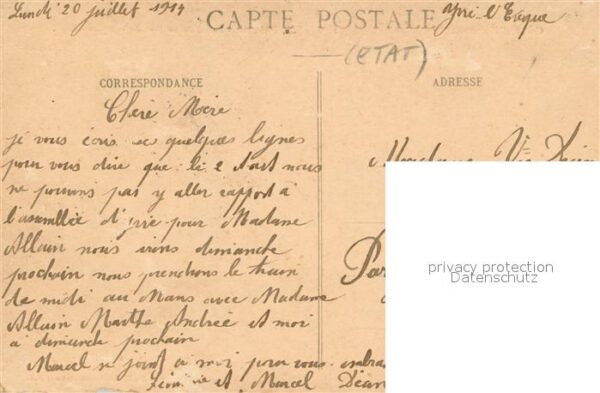 Lundi 20 juillet 1914
Yvré l'Evêque
CARTE POSTALE
(ETAT)
CORRESPONDANCE
ADRESSE
Chère Mère
je vous écris ses quelques lignes
pour vous dire que le 2 Aout nous
ne pouvons pas y aller rapport à
l'assemblée d'yvré pour Madame
Allain nous irons dimanche
prochain nous prendrons le train
de midi au Mans avec Madame
Allain Marthe Andrée et moi
a dimanche prochain
Marcel se joint a moi pour vous
et Marcel
Madame Vve
Par
privacy protection
Datenschutz